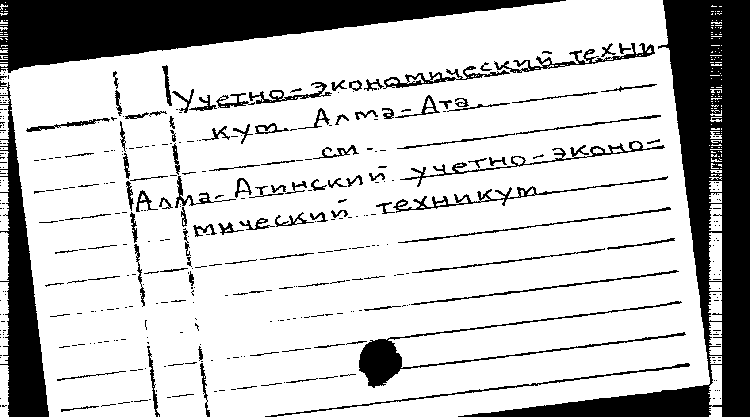 Учетно-экономический техни-
кум. Алма-Ата.
см.
Алма-Атинский учетно-эконо-
мический техникум.